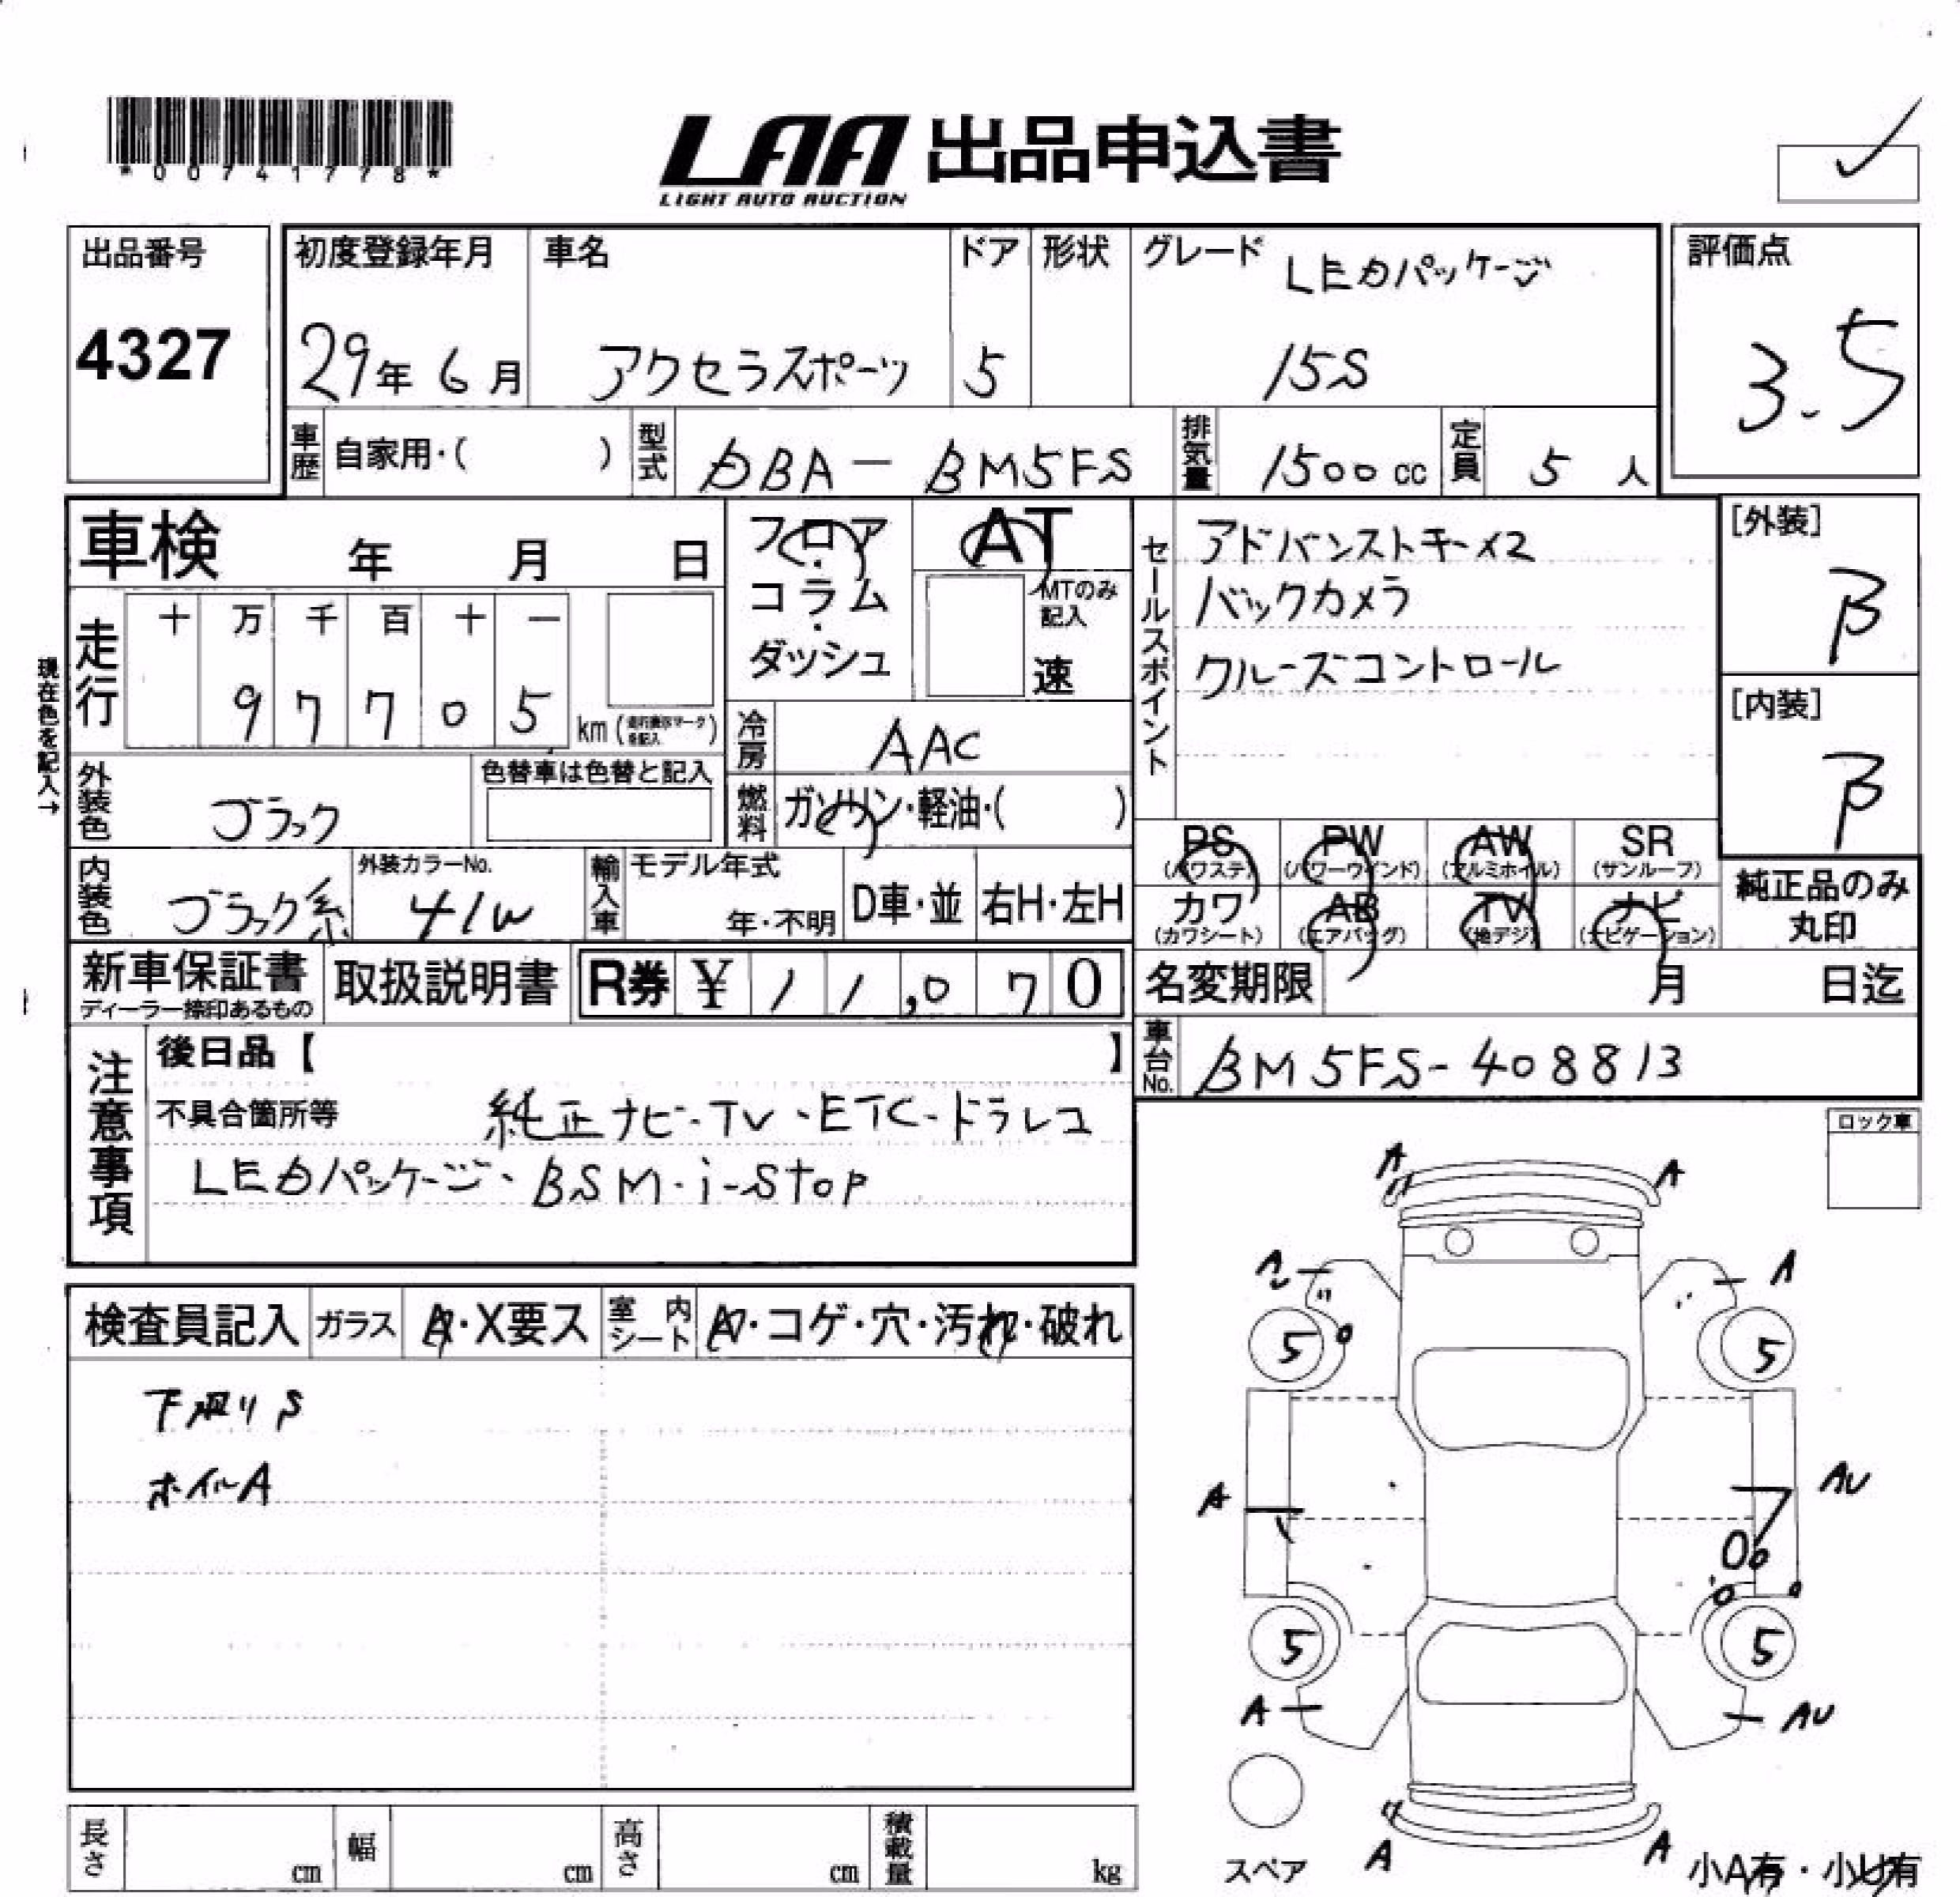 *00741778*
LAA 出品申込書
LIGHT AUTO AUCTION
出品番号
4327
初度登録年月
29年 6月
車名
アクセラスポーツ
ドア
5
形状
グレード LEDパッケージ
15S
評価点
3.5
車歴 自家用・( )
型式 DBA - BM5FS
排気量 1500 cc
定員 5 人
車検 年 月 日
フロア・コラム・ダッシュ
AT
MTのみ記入
速
セールスポイント
アドバンストキーX2
バックカメラ
クルーズコントロール
[外装]
B
[内装]
B
現在色を記入→
走行
十 万 千 百 十 一
9 7 7 0 5 km
冷房 AAC
燃料 ガソリン・軽油・( )
外装色 ブラック
色替車は色替と記入
内装色 ブラック系
外装カラーNo.
41W
輸入車 モデル年式
年・不明
D車・並
右H・左H
PS (パワステ)
PW (パワーウインド)
AW (アルミホイル)
SR (サンルーフ)
カワ (カワシート)
AB (エアバッグ)
TV (地デジ)
ナビ (ナビゲーション)
純正品のみ
丸印
新車保証書
ディーラー捺印あるもの
取扱説明書
R券 ¥ 11,070
名変期限 月 日迄
車台No. BM5FS-408813
注意事項
後日品【 】
不具合箇所等 純正ナビ・TV・ETC・ドラレコ
LEDパッケージ・BSM・i-stop
ロック車
検査員記入
ガラス A・X要ス
室内シート A・コゲ・穴・汚れ・破れ
下廻りS
ホイルA
A A
A A
5 5
A AU
5 5
A AU
A A
スペア
小A有・小U有
長さ cm
幅 cm
高さ cm
積載量 kg